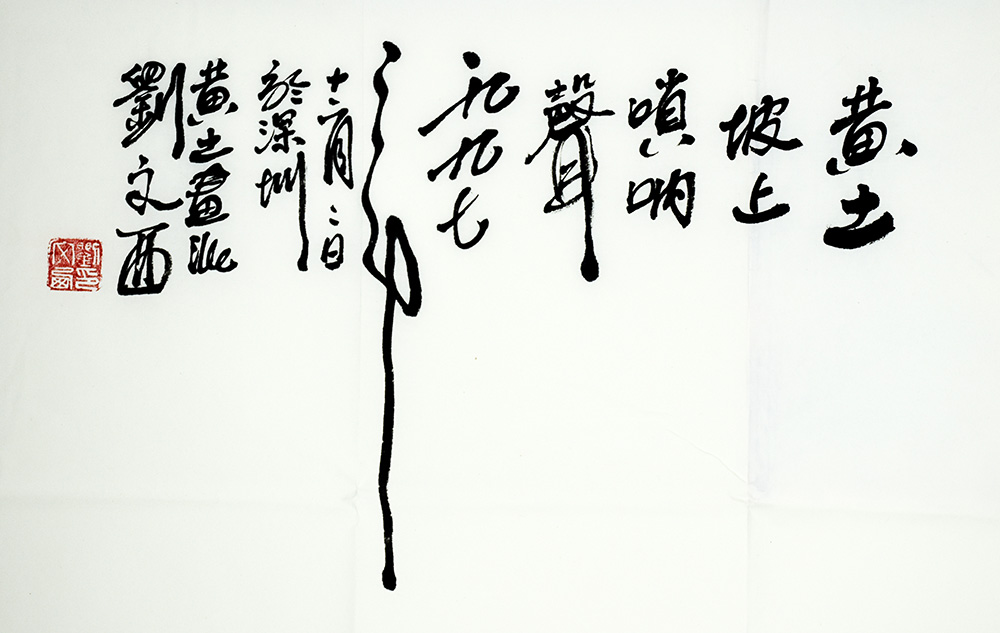 黄土
坡上
嗩吶
聲
一九九七
年
十二月二日
於深圳
黄土畫派
劉文西
劉印
文西